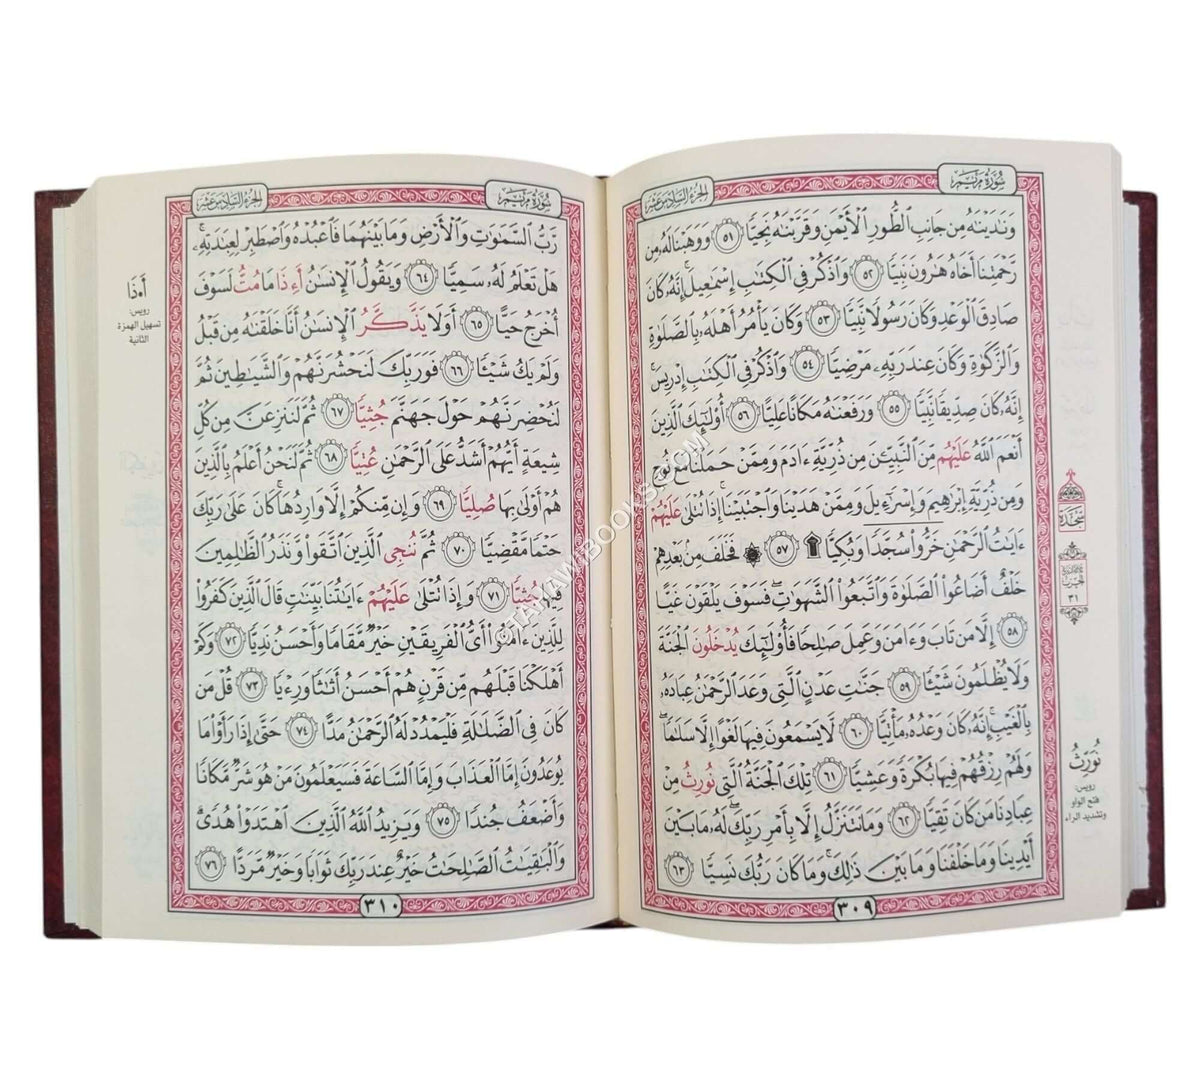 سُورَةُ مَرْيَم
الجُزءُ السَّادِسَ عَشَرَ
وَنَٰدَيْنَٰهُ مِن جَانِبِ ٱلطُّورِ ٱلْأَيْمَنِ وَقَرَّبْنَٰهُ نَجِيًّا ٥١ وَوَهَبْنَا لَهُۥ مِن
رَّحْمَتِنَا أَخَاهُ هَٰرُونَ نَبِيًّا ٥٢ وَٱذْكُرْ فِي ٱلْكِتَٰبِ إِسْمَٰعِيلَۚ إِنَّهُۥ كَانَ
صَادِقَ ٱلْوَعْدِ وَكَانَ رَسُولًا نَّبِيًّا ٥٣ وَكَانَ يَأْمُرُ أَهْلَهُۥ بِٱلصَّلَوٰةِ
وَٱلزَّكَوٰةِ وَكَانَ عِندَ رَبِّهِۦ مَرْضِيًّا ٥٤ وَٱذْكُرْ فِي ٱلْكِتَٰبِ إِدْرِيسَۚ
إِنَّهُۥ كَانَ صِدِّيقًا نَّبِيًّا ٥٥ وَرَفَعْنَٰهُ مَكَانًا عَلِيًّا ٥٦ أُو۟لَٰٓئِكَ ٱلَّذِينَ
أَنْعَمَ ٱللَّهُ عَلَيْهُم مِّنَ ٱلنَّبِيِّـۧنَ مِن ذُرِّيَّةِ ءَادَمَ وَمِمَّنْ حَمَلْنَا مَعَ نُوحٍ
وَمِن ذُرِّيَّةِ إِبْرَٰهِيمَ وَإِسْرَٰٓءِيلَ وَمِمَّنْ هَدَيْنَا وَٱجْتَبَيْنَاۚ إِذَا تُتْلَىٰ عَلَيْهُمْ
ءَايَٰتُ ٱلرَّحْمَٰنِ خَرُّوا۟ سُجَّدًا وَبُكِيًّا ۩ ٥٧ ۞ فَخَلَفَ مِنۢ بَعْدِهِمْ
خَلْفٌ أَضَاعُوا۟ ٱلصَّلَوٰةَ وَٱتَّبَعُوا۟ ٱلشَّهَوَٰتِۖ فَسَوْفَ يَلْقَوْنَ غَيًّا
٥٨ إِلَّا مَن تَابَ وَءَامَنَ وَعَمِلَ صَٰلِحًا فَأُو۟لَٰٓئِكَ يُدْخَلُونَ ٱلْجَنَّةَ
وَلَا يُظْلَمُونَ شَيْـًٔا ٥٩ جَنَّٰتِ عَدْنٍ ٱلَّتِي وَعَدَ ٱلرَّحْمَٰنُ عِبَادَهُۥ
بِٱلْغَيْبِۚ إِنَّهُۥ كَانَ وَعْدُهُۥ مَأْتِيًّا ٦٠ لَّا يَسْمَعُونَ فِيهَا لَغْوًا إِلَّا سَلَٰمًاۖ
وَلَهُمْ رِزْقُهُمْ فِيهَا بُكْرَةً وَعَشِيًّا ٦١ تِلْكَ ٱلْجَنَّةُ ٱلَّتِي نُوَرِّثُ مِنْ
عِبَادِنَا مَن كَانَ تَقِيًّا ٦٢ وَمَا نَتَنَزَّلُ إِلَّا بِأَمْرِ رَبِّكَۖ لَهُۥ مَا بَيْنَ
أَيْدِينَا وَمَا خَلْفَنَا وَمَا بَيْنَ ذَٰلِكَۚ وَمَا كَانَ رَبُّكَ نَسِيًّا ٦٣
٣٠٩
سَجْدَة
الحِزْب
٣١
نُوَرِّثُ
رويس:
فتح الواو
وتشديد الراء
سُورَةُ مَرْيَم
الجُزءُ السَّادِسَ عَشَرَ
رَّبُّ ٱلسَّمَٰوَٰتِ وَٱلْأَرْضِ وَمَا بَيْنَهُمَا فَٱعْبُدْهُ وَٱصْطَبِرْ لِعِبَٰدَتِهِۦۚ
هَلْ تَعْلَمُ لَهُۥ سَمِيًّا ٦٤ وَيَقُولُ ٱلْإِنسَٰنُ أَءِذَا مَا مُتُّ لَسَوْفَ
أُخْرَجُ حَيًّا ٦٥ أَوَلَا يَذَّكَّرُ ٱلْإِنسَٰنُ أَنَّا خَلَقْنَٰهُ مِن قَبْلُ
وَلَمْ يَكُ شَيْـًٔا ٦٦ فَوَرَبِّكَ لَنَحْشُرَنَّهُمْ وَٱلشَّيَٰطِينَ ثُمَّ
لَنُحْضِرَنَّهُمْ حَوْلَ جَهَنَّمَ جُثِيًّا ٦٧ ثُمَّ لَنَنزِعَنَّ مِن كُلِّ
شِيعَةٍ أَيُّهُمْ أَشَدُّ عَلَى ٱلرَّحْمَٰنِ عُتِيًّا ٦٨ ثُمَّ لَنَحْنُ أَعْلَمُ بِٱلَّذِينَ
هُمْ أَوْلَىٰ بِهَا صُلِيًّا ٦٩ وَإِن مِّنكُمْ إِلَّا وَارِدُهَاۚ كَانَ عَلَىٰ رَبِّكَ
حَتْمًا مَّقْضِيًّا ٧٠ ثُمَّ نُنجِي ٱلَّذِينَ ٱتَّقَوا۟ وَّنَذَرُ ٱلظَّٰلِمِينَ
فِيهَا جُثِيًّا ٧١ وَإِذَا تُتْلَىٰ عَلَيْهُمْ ءَايَٰتُنَا بَيِّنَٰتٍ قَالَ ٱلَّذِينَ كَفَرُوا۟
لِلَّذِينَ ءَامَنُوا۟ أَيُّ ٱلْفَرِيقَيْنِ خَيْرٌ مَّقَامًا وَأَحْسَنُ نَدِيًّا ٧٢ وَكَمْ
أَهْلَكْنَا قَبْلَهُم مِّن قَرْنٍ هُمْ أَحْسَنُ أَثَٰثًا وَرِءْيًا ٧٣ قُلْ مَن
كَانَ فِي ٱلضَّلَٰلَةِ فَلْيَمْدُدْ لَهُ ٱلرَّحْمَٰنُ مَدًّا ٧٤ حَتَّىٰٓ إِذَا رَأَوْا۟ مَا
يُوعَدُونَ إِمَّا ٱلْعَذَابَ وَإِمَّا ٱلسَّاعَةَ فَسَيَعْلَمُونَ مَنْ هُوَ شَرٌّ مَّكَانًا
وَأَضْعَفُ جُندًا ٧٥ وَيَزِيدُ ٱللَّهُ ٱلَّذِينَ ٱهْتَدَوْا۟ هُدًىۗ
وَٱلْبَٰقِيَٰتُ ٱلصَّٰلِحَٰتُ خَيْرٌ عِندَ رَبِّكَ ثَوَابًا وَخَيْرٌ مَّرَدًّا ٧٦
٣١٠
أَءذَا
رويس:
تسهيل الهمزة
الثانية
©TAHAWIBOOKS.COM